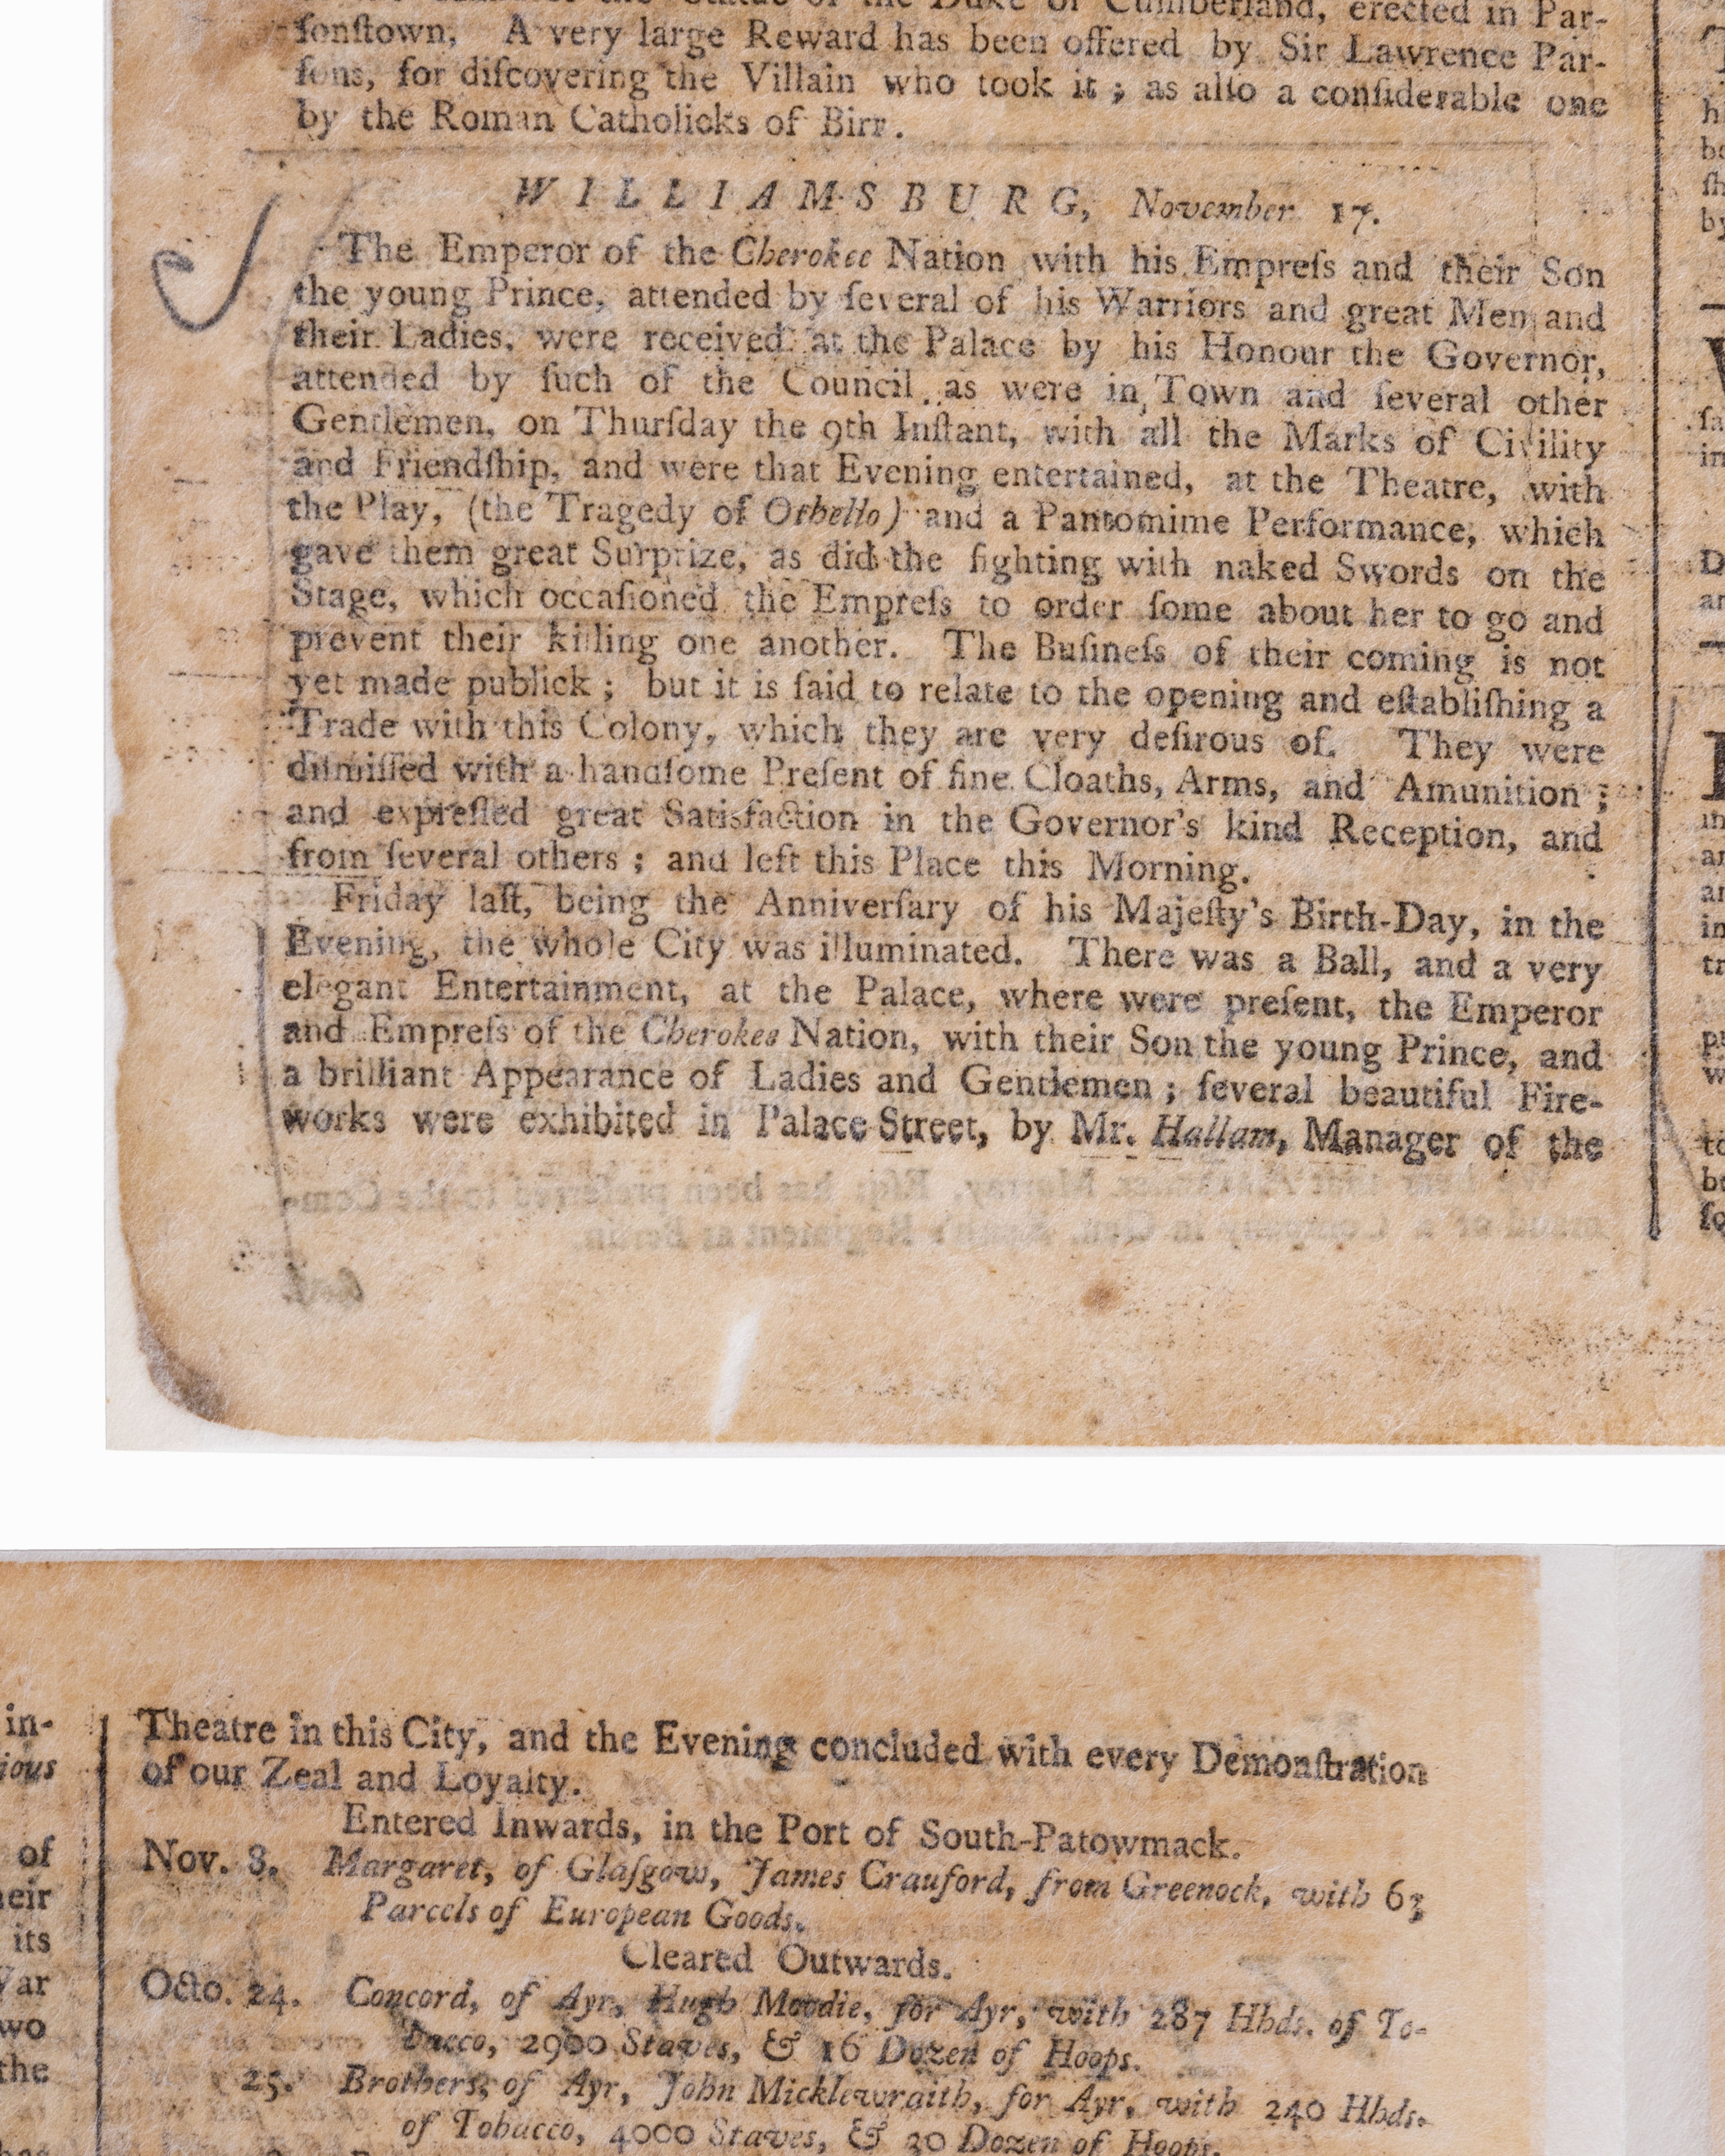 Statue of the Duke of Cumberland, erected in Par-
ſonſtown. A very large Reward has been offered by Sir Lawrence Par-
ſons, for diſcovering the Villain who took it ; as alſo a conſiderable one
by the Roman Catholicks of Birr.
WILLIAMSBURG, November 17.
The Emperor of the Cherokee Nation with his Empreſs and their Son
the young Prince, attended by ſeveral of his Warriors and great Men and
their Ladies, were received at the Palace by his Honour the Governor,
attended by ſuch of the Council as were in Town and ſeveral other
Gentlemen, on Thurſday the 9th Inſtant, with all the Marks of Civility
and Friendſhip, and were that Evening entertained, at the Theatre, with
the Play, (the Tragedy of Othello) and a Pantomime Performance, which
gave them great Surprize, as did the fighting with naked Swords on the
Stage, which occaſioned the Empreſs to order ſome about her to go and
prevent their killing one another. The Buſineſs of their coming is not
yet made publick ; but it is ſaid to relate to the opening and eſtabliſhing a
Trade with this Colony, which they are very deſirous of. They were
diſmiſſed with a handſome Preſent of fine Cloaths, Arms, and Amunition ;
and expreſſed great Satisfaction in the Governor's kind Reception, and
from ſeveral others ; and left this Place this Morning.
Friday laſt, being the Anniverſary of his Majeſty's Birth-Day, in the
Evening, the whole City was illuminated. There was a Ball, and a very
elegant Entertainment, at the Palace, where were preſent, the Emperor
and Empreſs of the Cherokee Nation, with their Son the young Prince, and
a brilliant Appearance of Ladies and Gentlemen ; ſeveral beautiful Fire-
works were exhibited in Palace Street, by Mr. Hallam, Manager of the
Theatre in this City, and the Evening concluded with every Demonſtration
of our Zeal and Loyalty.
Entered Inwards, in the Port of South-Patowmack.
Nov. 8. Margaret, of Glaſgow, James Crauford, from Greenock, with 63
Parcels of European Goods.
Cleared Outwards.
Octo. 24. Concord, of Ayr, Hugh Moodie, for Ayr, with 287 Hhds. of To-
bacco, 2900 Staves, & 16 Dozen of Hoops.
25. Brothers, of Ayr, John Micklewraith, for Ayr, with 240 Hhds.
of Tobacco, 4000 Staves, & 30 Dozen of Hoops.